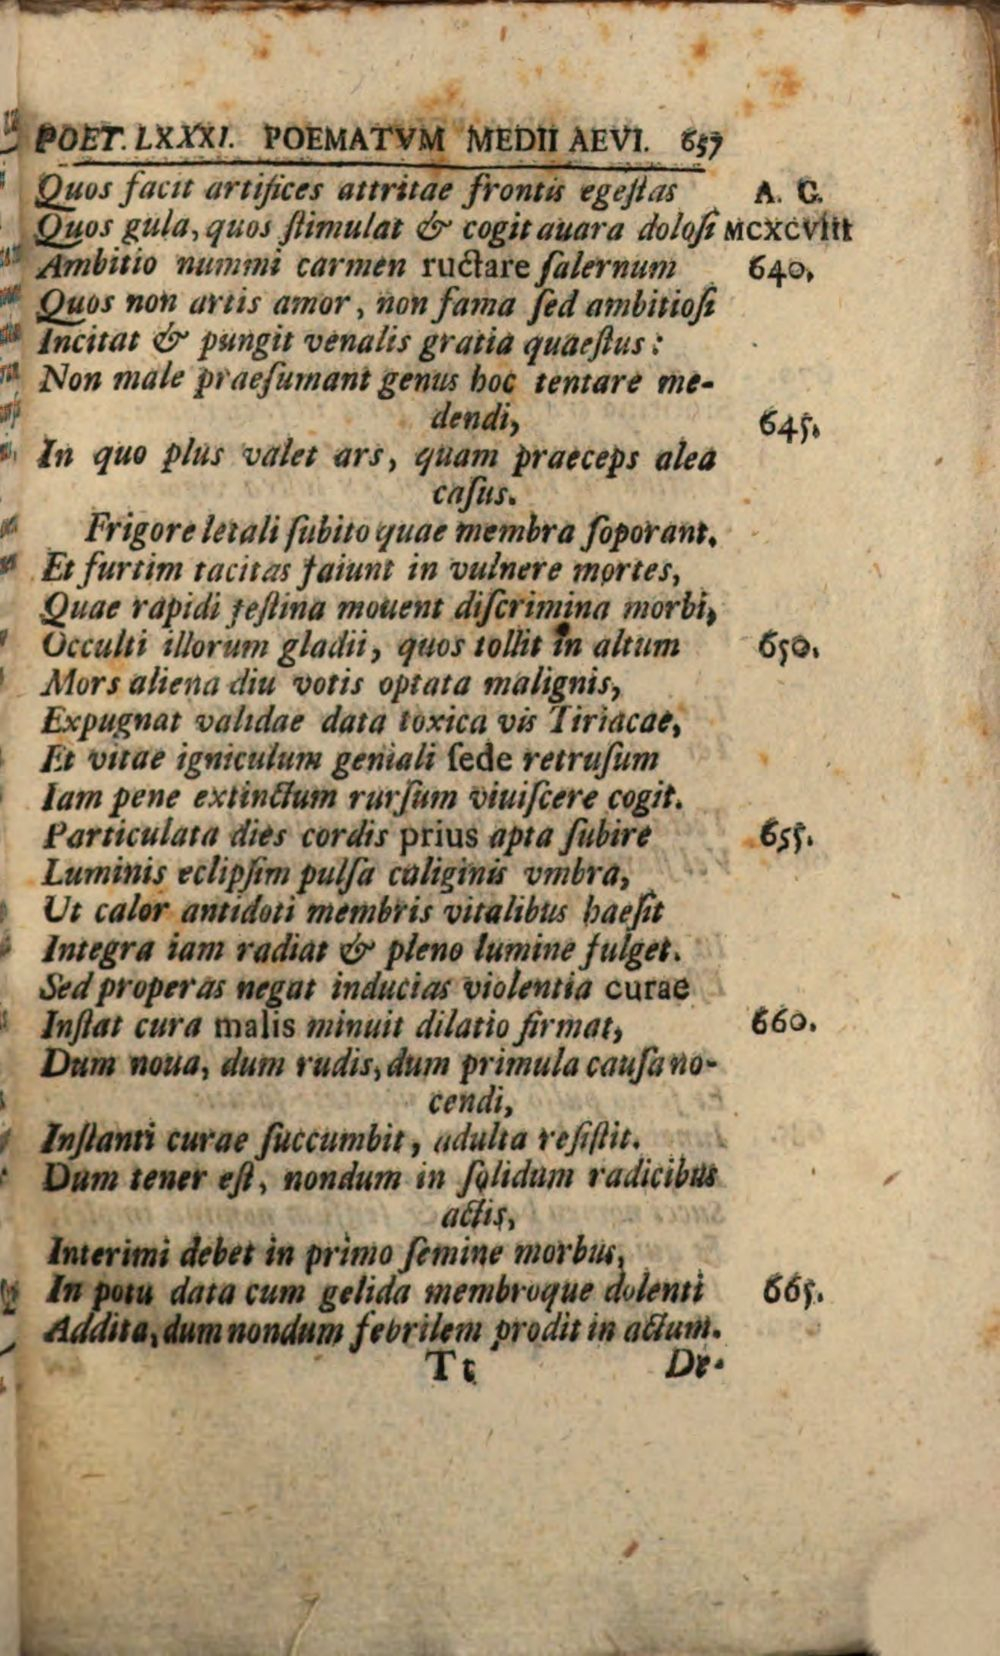 POET. LXXXI. POEMATVM MEDII AEVI. 657
Quos facit artifices attritae frontis egeſtas A. C.
Quos gula, quos ſtimulat & cogit auara doloſi MCXCVIII
Ambitio nummi carmen ructare ſalernum 640.
Quos non artis amor, non fama ſed ambitioſi
Incitat & pungit venalis gratia quaeſtus:
Non male praeſumant genus hoc tentare me-
dendi, 645.
In quo plus valet ars, quam praeceps alea
caſus.
Frigore letali ſubito quae membra ſoporant.
Et furtim tacitas faiunt in vulnere mortes,
Quae rapidi feſtina mouent diſcrimina morbi,
Occulti illorum gladii, quos tollit in altum 650.
Mors aliena diu votis optata malignis,
Expugnat validae data toxica vis Tiriacae,
Et vitae igniculum geniali ſede retruſum
Iam pene extinctum rurſum viuiſcere cogit.
Particulata dies cordis prius apta ſubire 655.
Luminis eclipſim pulſa caliginis vmbra,
Ut calor antidoti membris vitalibus haeſit
Integra iam radiat & pleno lumine fulget.
Sed properas negat inducias violentia curae
Inſtat cura malis minuit dilatio firmat, 660.
Dum noua, dum rudis, dum primula cauſa no-
cendi,
Inſtanti curae ſuccumbit, adulta reſiſtit.
Dum tener eſt, nondum in ſolidum radicibus
actis,
Interimi debet in primo ſemine morbus,
In potu data cum gelida membroque dolenti 665.
Addita, dum nondum febrilem prodit in actum.
Tt De-